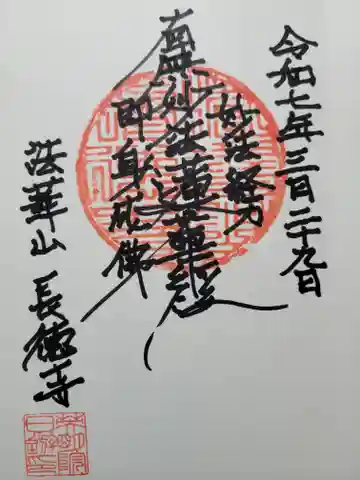 令和七年三月二十九日
妙法経力
南無妙法蓮華経
即身成佛
法華山 長徳寺